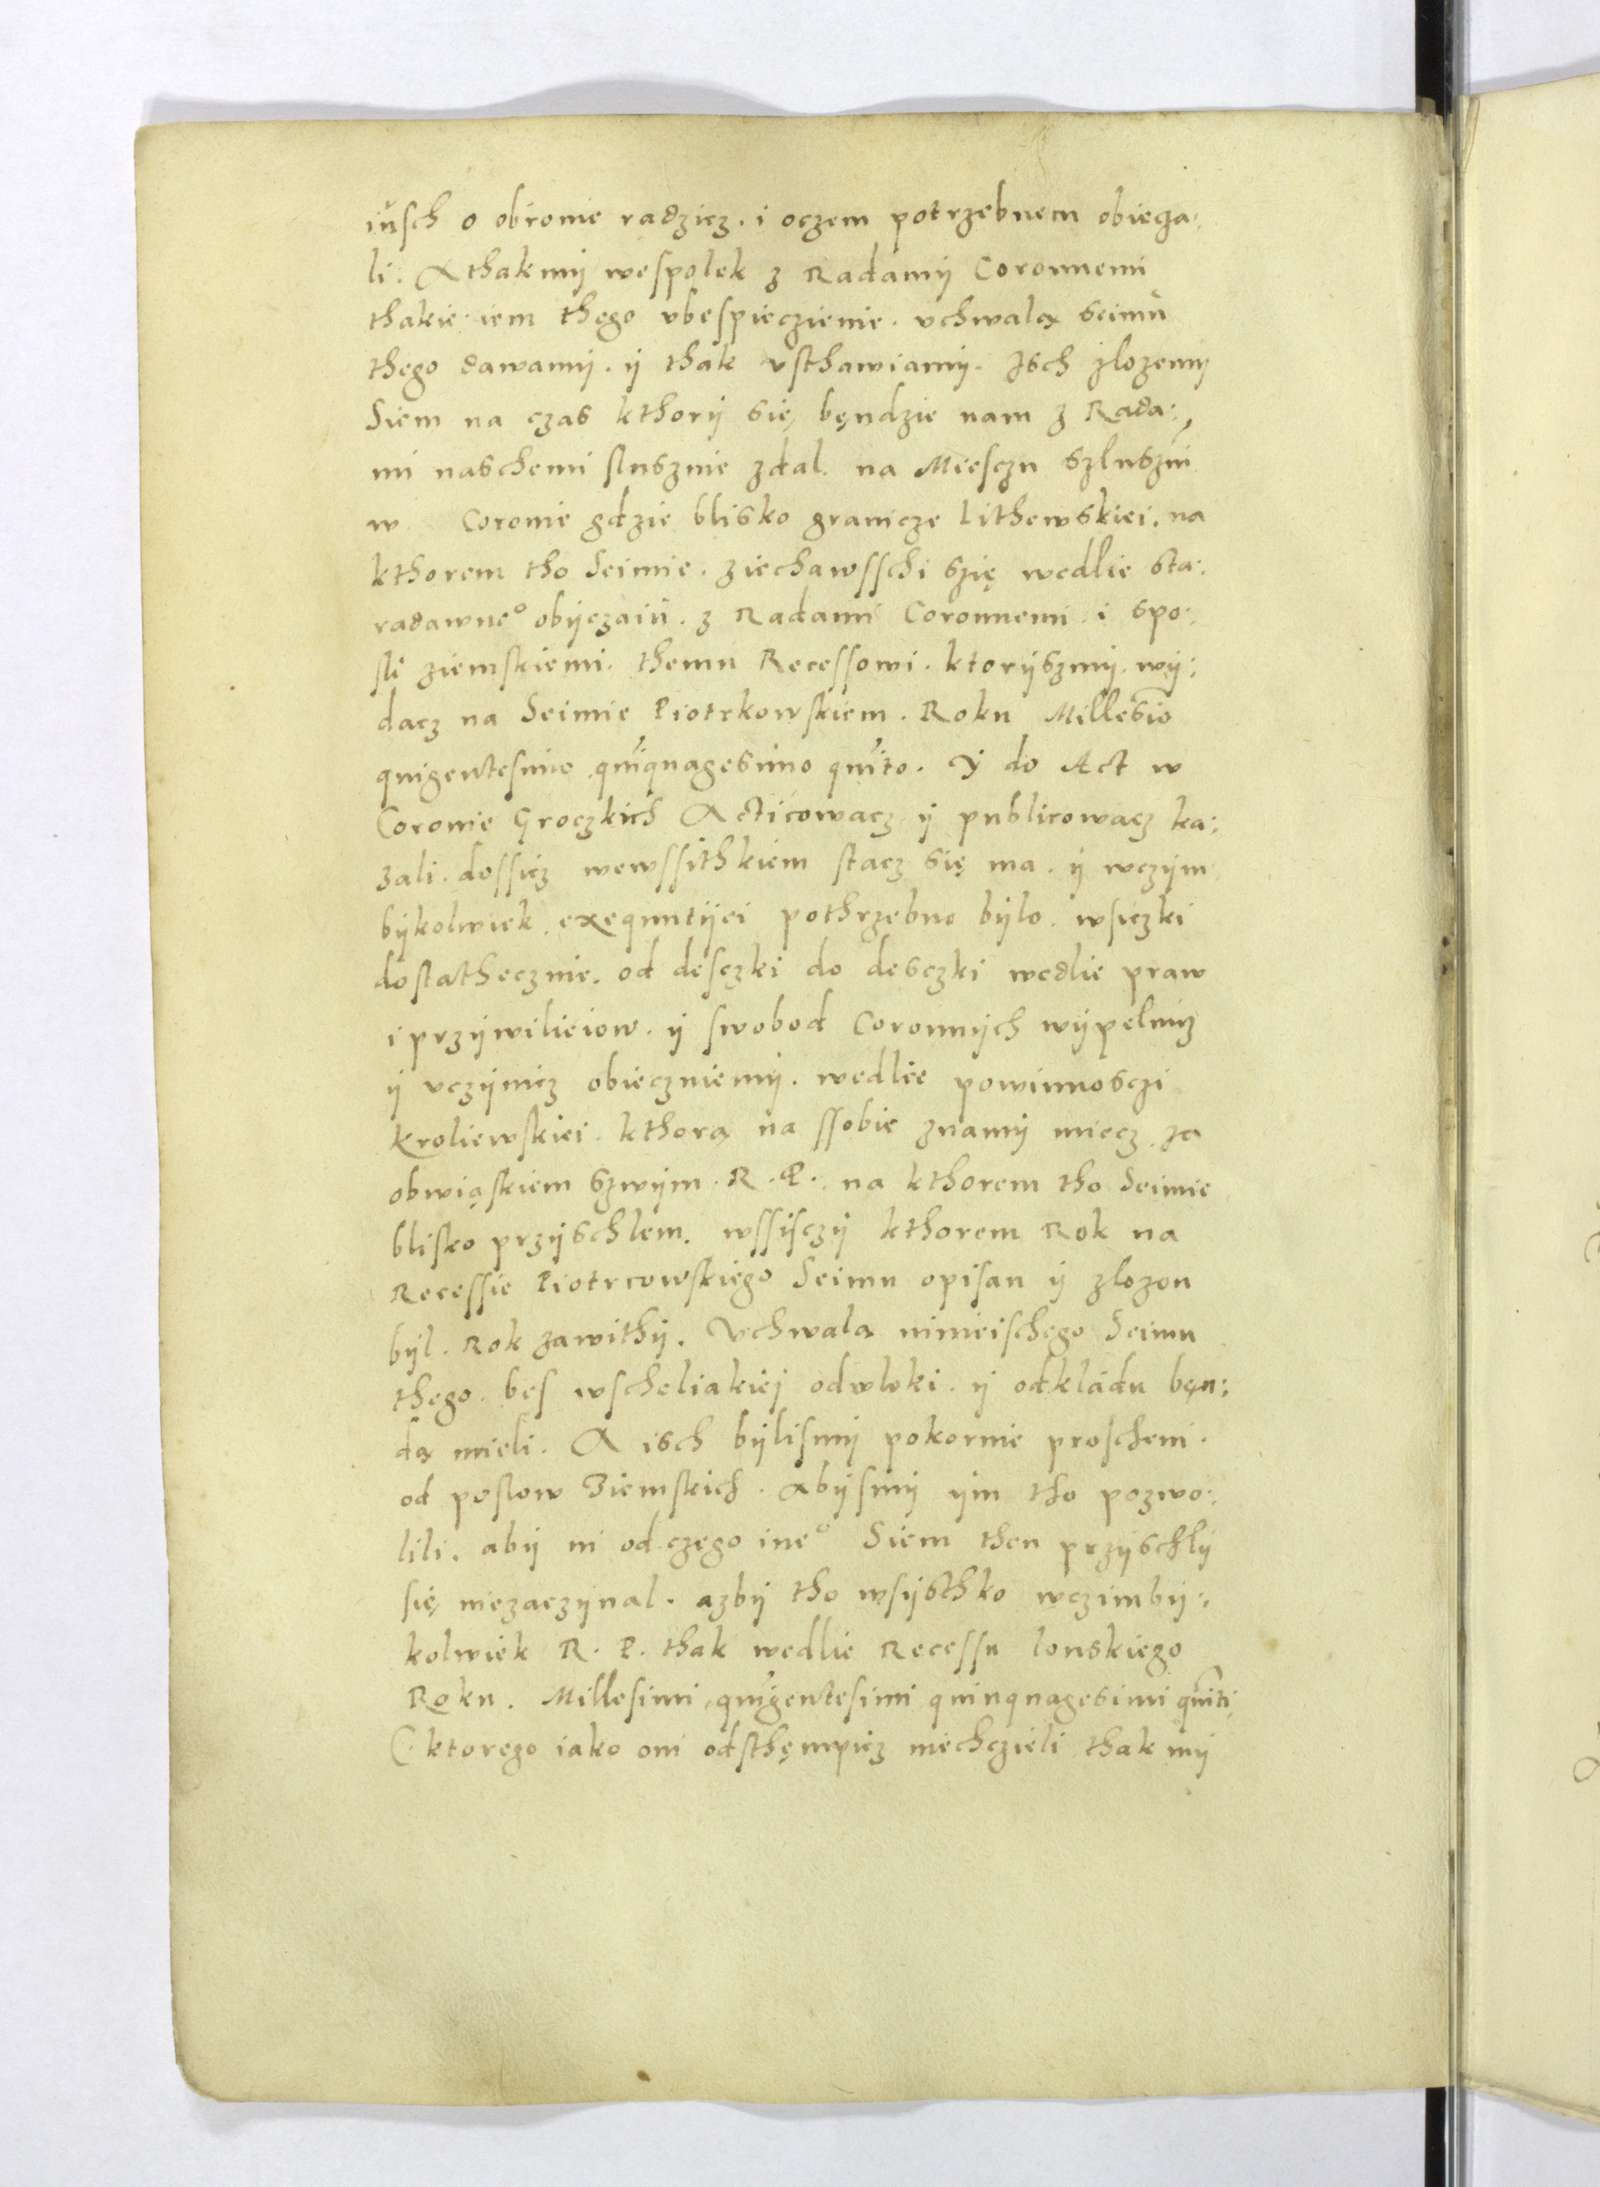 iusch o obronie radzicz. i oczem potrzebnem obiecza:
li. A thak mÿ wespolek z Radamÿ Coronnemi
thakie: iem thęgo vbespieczienie. vchwalą seimu
thego dawamÿ. ÿ thak vsthawiamÿ. Isch zlozemÿ
Siem na czas kthorÿ się bęndzie nam z Rada:,
mi naschemi slusznie zdal. na Miesczu szluszni
w Coronie gdzie blisko granicze Lithewskiei. na
kthorem tho Seimie. ziechawsschi szię wedlie sta:
radawne° obÿczaiu. z Radami Coronnemi. i spo:
sli ziemskiemi. themu Recessowi. ktorÿszmÿ wÿ:
dacz na Seimie Piotrkowskiem. Roku Millesīo
quigentesimo quīquagesimo quīto. Y do Act w
Coronie Groczkich Acticowacz ÿ publicowacz ka:
zali. dossicz wewssithkiem stacz się ma. ÿ wczÿm
bÿkolwiek exequutÿei pothrzebno bÿlo. wsiczki
dostathecznie. od desczki do desczki wedlie praw
i przÿwilieiow. ÿ swobod Coronnÿch wÿpelnicz
ÿ vczÿnicz obieczuiemÿ. wedlie powinnosczi
Kroliewskiei. kthorą na ssobie znamÿ miecz za
obwiąskiem szwÿm. R. P. na kthorem tho Seimie
blisko przÿschlem. wssisczÿ kthorem Rok na
Recessie Piotrcowskiego Seimu opisan ÿ zlozon
bÿl. Rok zawithÿ. Vchwalą ninieischego Seimu
thego. bes wscheliakiej odwloki. ÿ odkladu bęn:
dą mieli. A isch bÿlismÿ pokornie proscheni.
od poslow Ziemskich. abÿsmÿ ÿm tho pozwo:
lili. abÿ ni od czego ine° Siem then przÿschlÿ
się niezaczÿnal. azbÿ tho wsÿsthko wczimbÿ:
kolwiek R. P. thak wedlie Recessu lonskiego
Roku. Millesimi quīgentesimi quinquagesimi quīti.
(ktorego iako oni odsthęmpicz niechczieli thak mÿ